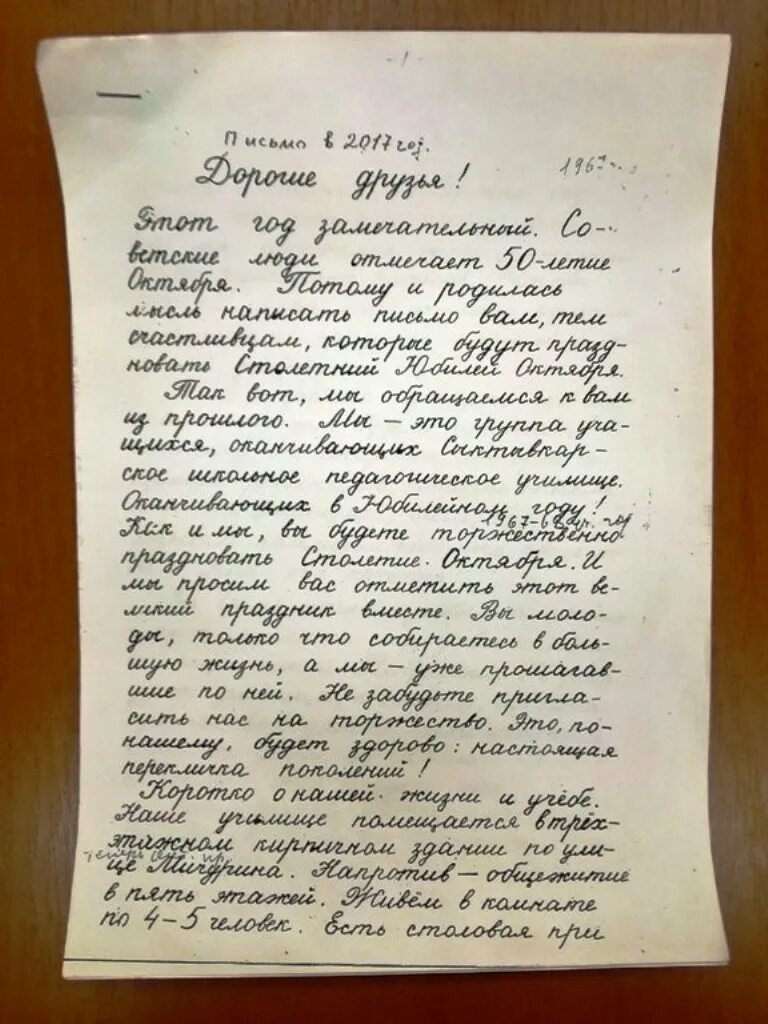 Письмо в 2017 год.
1967 г.
Дорогие друзья!
Этот год замечательный. Со-
ветские люди отмечает 50-летие
Октября. Потому и родилась
мысль написать письмо вам, тем
счастливцам, которые будут празд-
новать Столетний Юбилей Октября.
Так вот, мы обращаемся к вам
из прошлого. Мы — это группа уча-
щихся, оканчивающих Сыктывкар-
ское школьное педагогическое училище.
Оканчивающих в Юбилейном году!
1967-68 год
Как и мы, вы будете торжественно
праздновать Столетие Октября. И
мы просим вас отметить этот ве-
ликий праздник вместе. Вы моло-
ды, только что собираетесь в боль-
шую жизнь, а мы — уже прошагав-
шие по ней. Не забудьте пригла-
сить нас на торжество. Это, по-
нашему, будет здорово: настоящая
перекличка поколений!
Коротко о нашей жизни и учёбе.
Наше училище помещается в трёх-
этажном кирпичном здании по ули-
теперь
це Мичурина. Напротив — общежитие
в пять этажей. Живём в комнате
по 4-5 человек. Есть столовая при